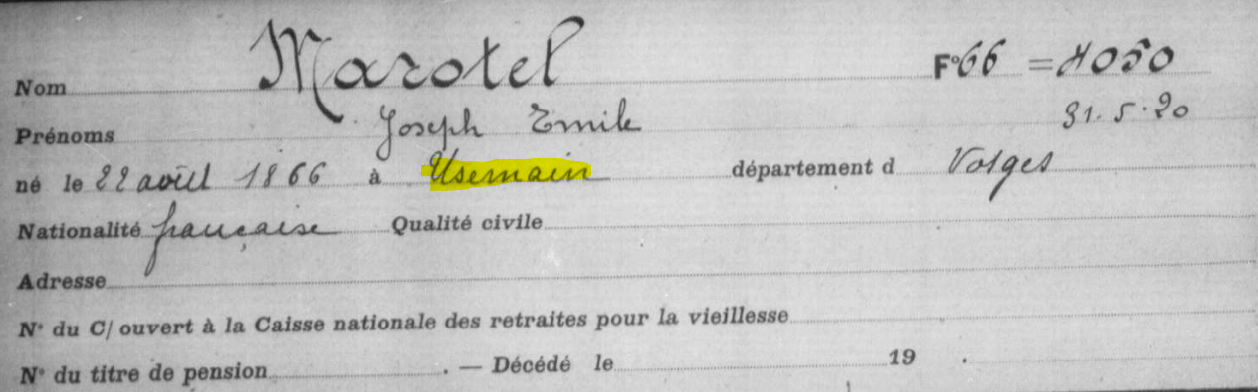 Nom Marotel F° 66 = 4050
Prénoms Joseph Emile 31.5.20
né le 22 août 1866 à Usemain département d Vosges
Nationalité française Qualité civile
Adresse
N° du C/ ouvert à la Caisse nationale des retraites pour la vieillesse
N° du titre de pension . — Décédé le 19 .